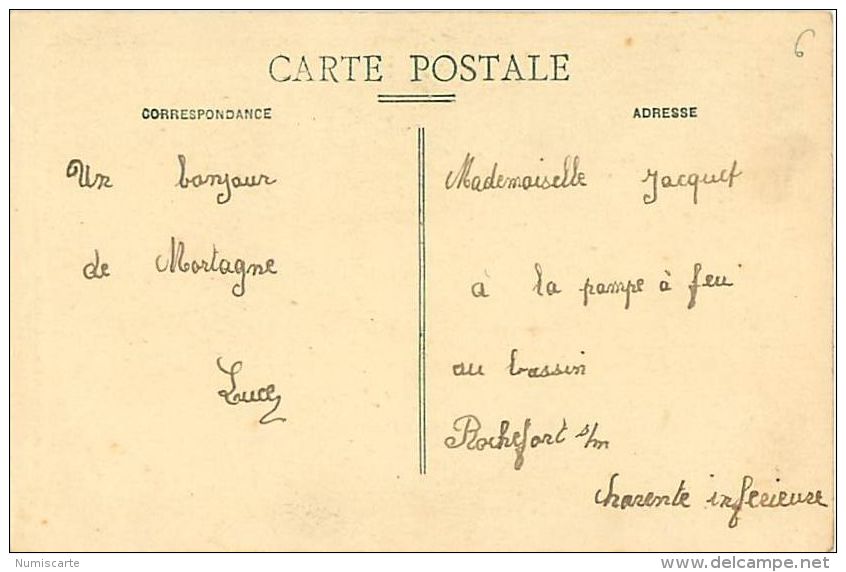 6
CARTE POSTALE
CORRESPONDANCE
ADRESSE
Un bonjour
de Mortagne
Lucy
Mademoiselle Jacquet
à la pompe à feu
au bassin
Rochefort s/m
charente inferieure
Numiscarte
www.delcampe.net